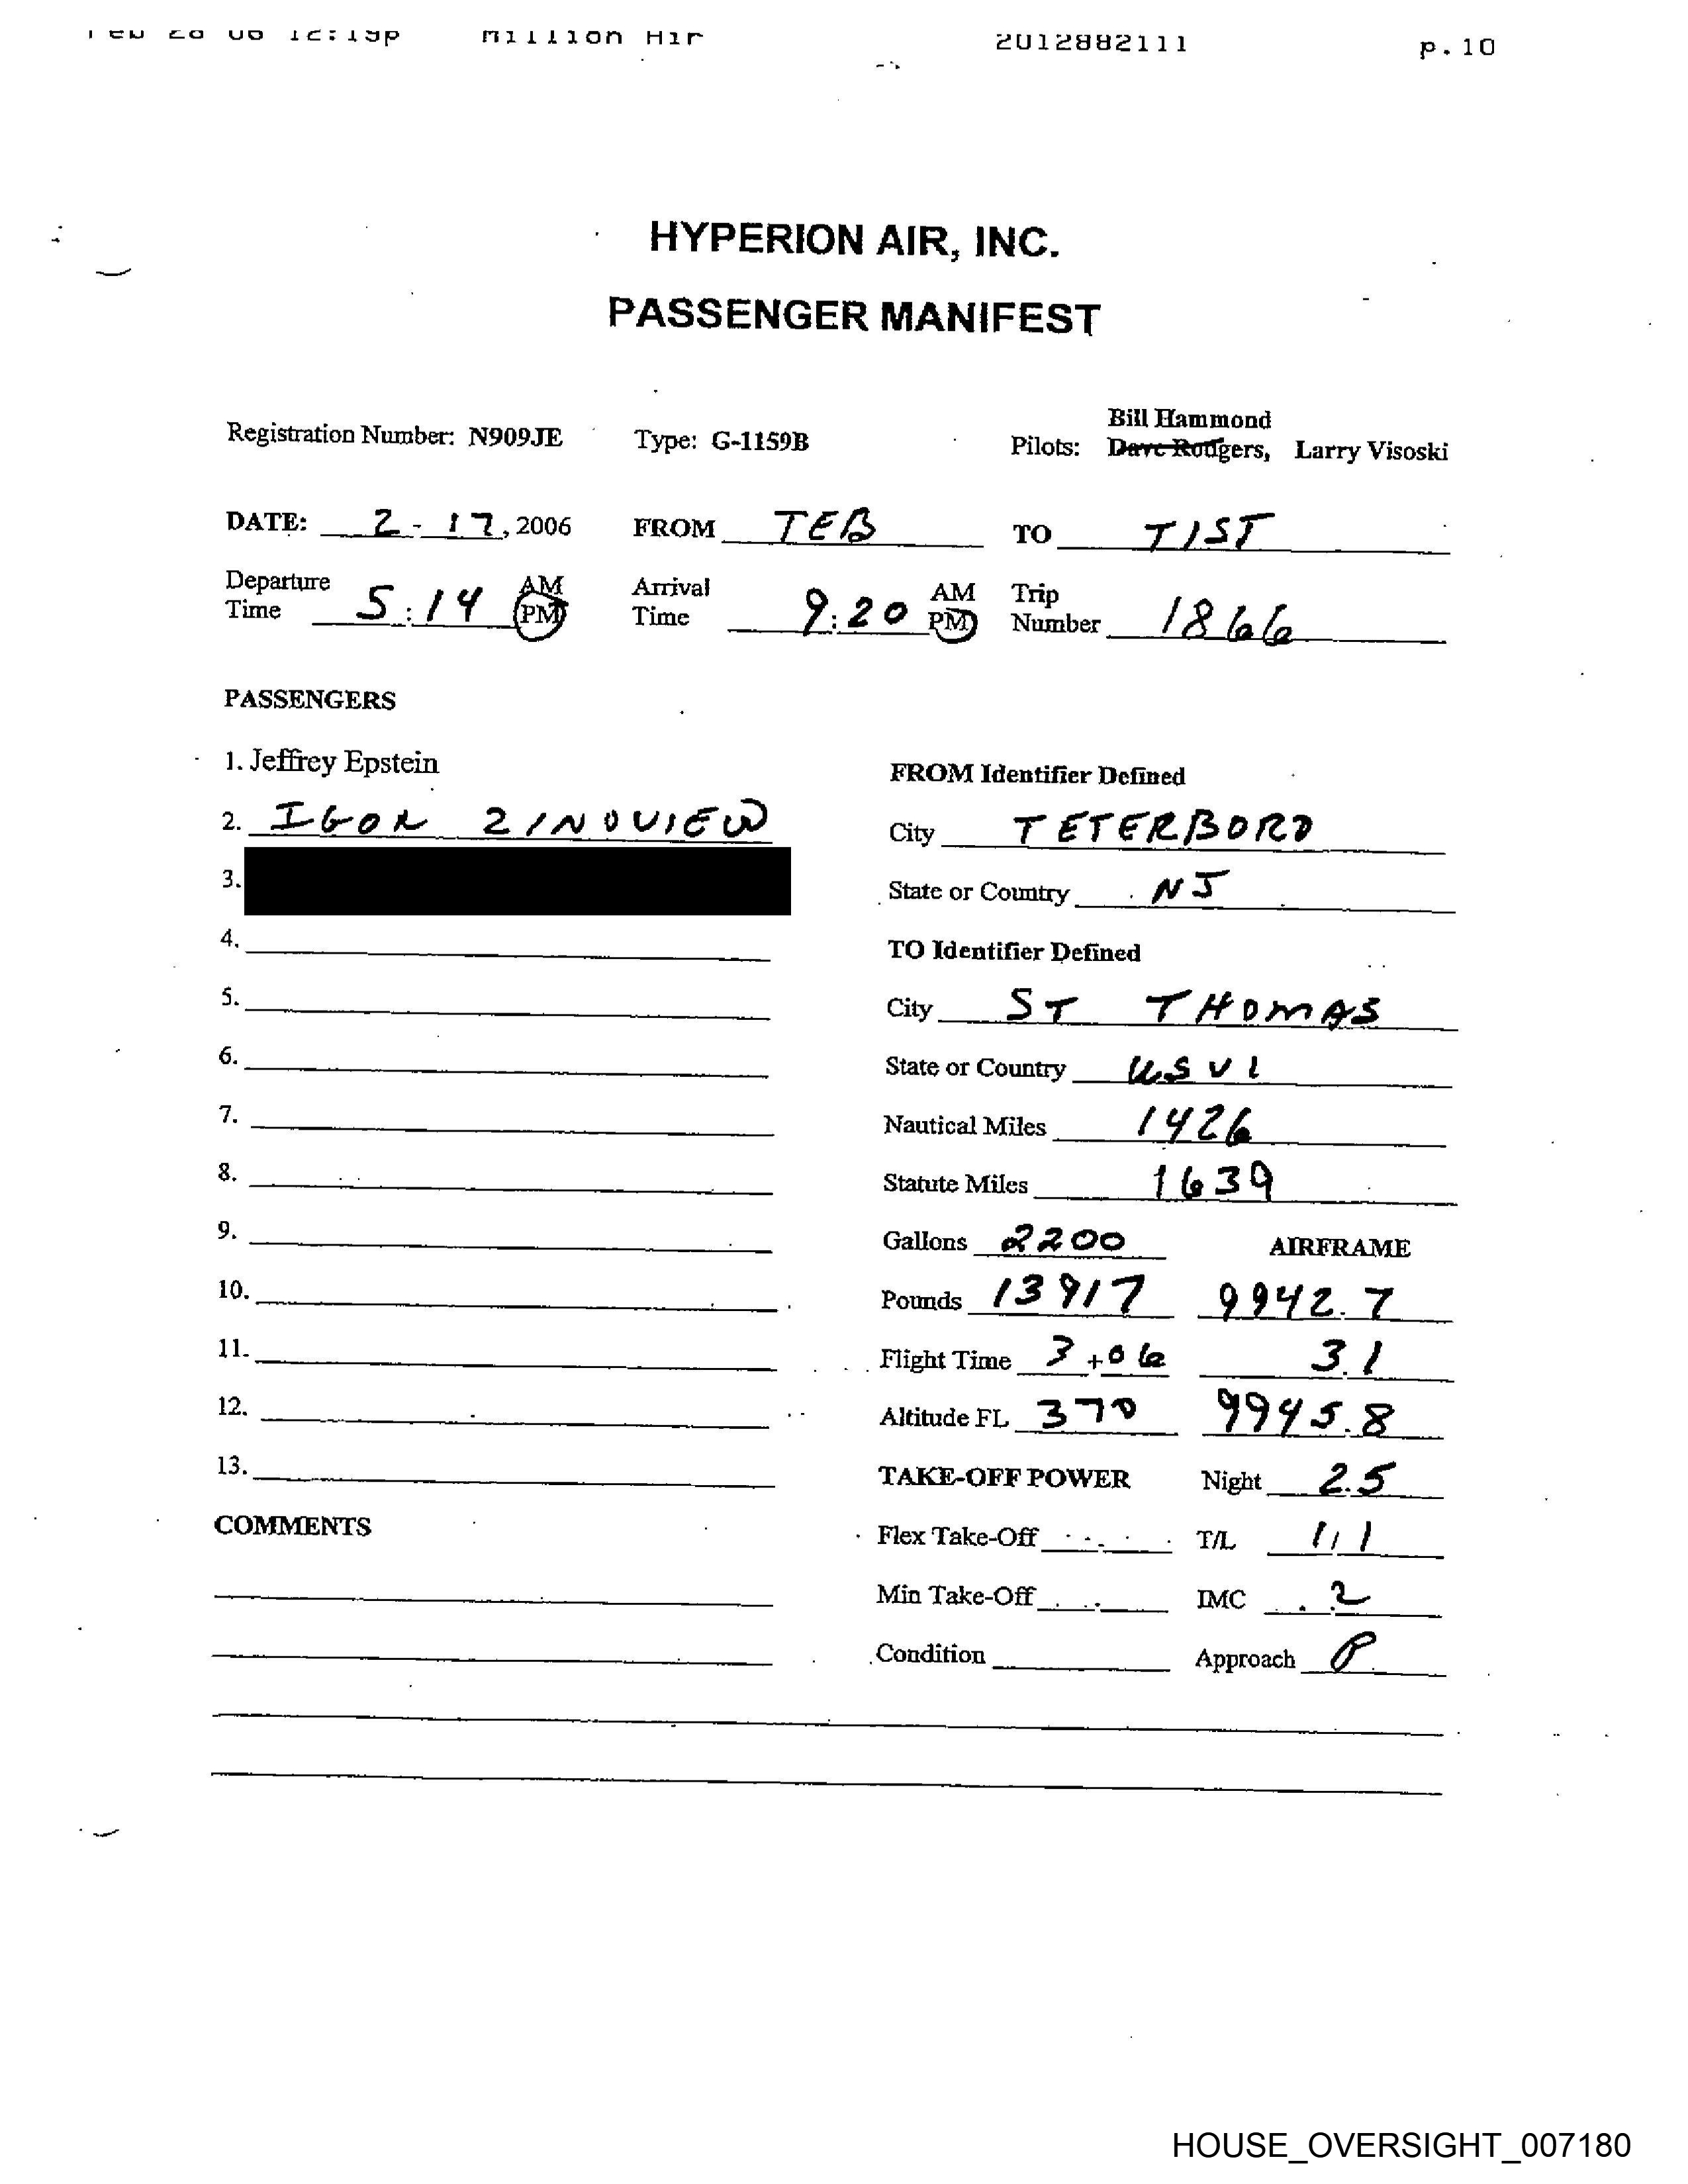 Feb 28 06 12:19p Million Air 2012882111 p.10
HYPERION AIR, INC.
PASSENGER MANIFEST
Bill Hammond
Registration Number: N909JE Type: G-1159B Pilots: Dave Rodgers, Larry Visoski
DATE: 2 - 17, 2006 FROM TEB TO TIST
Departure Time 5:14 AM PM Arrival Time 9:20 AM PM Trip Number 1866
PASSENGERS
1. Jeffrey Epstein
FROM Identifier Defined
2. IGOR ZINOVIEW
City TETERBORO
3.
State or Country NJ
4.
TO Identifier Defined
5.
City ST THOMAS
6.
State or Country USVI
7.
Nautical Miles 1426
8.
Statute Miles 1639
9.
Gallons 2200 AIRFRAME
10.
Pounds 13917 9942.7
11.
Flight Time 3+06 3.1
12.
Altitude FL 370 9945.8
13.
TAKE-OFF POWER Night 2.5
COMMENTS
Flex Take-Off T/L 1/1
Min Take-Off IMC .2
Condition Approach P
HOUSE_OVERSIGHT_007180